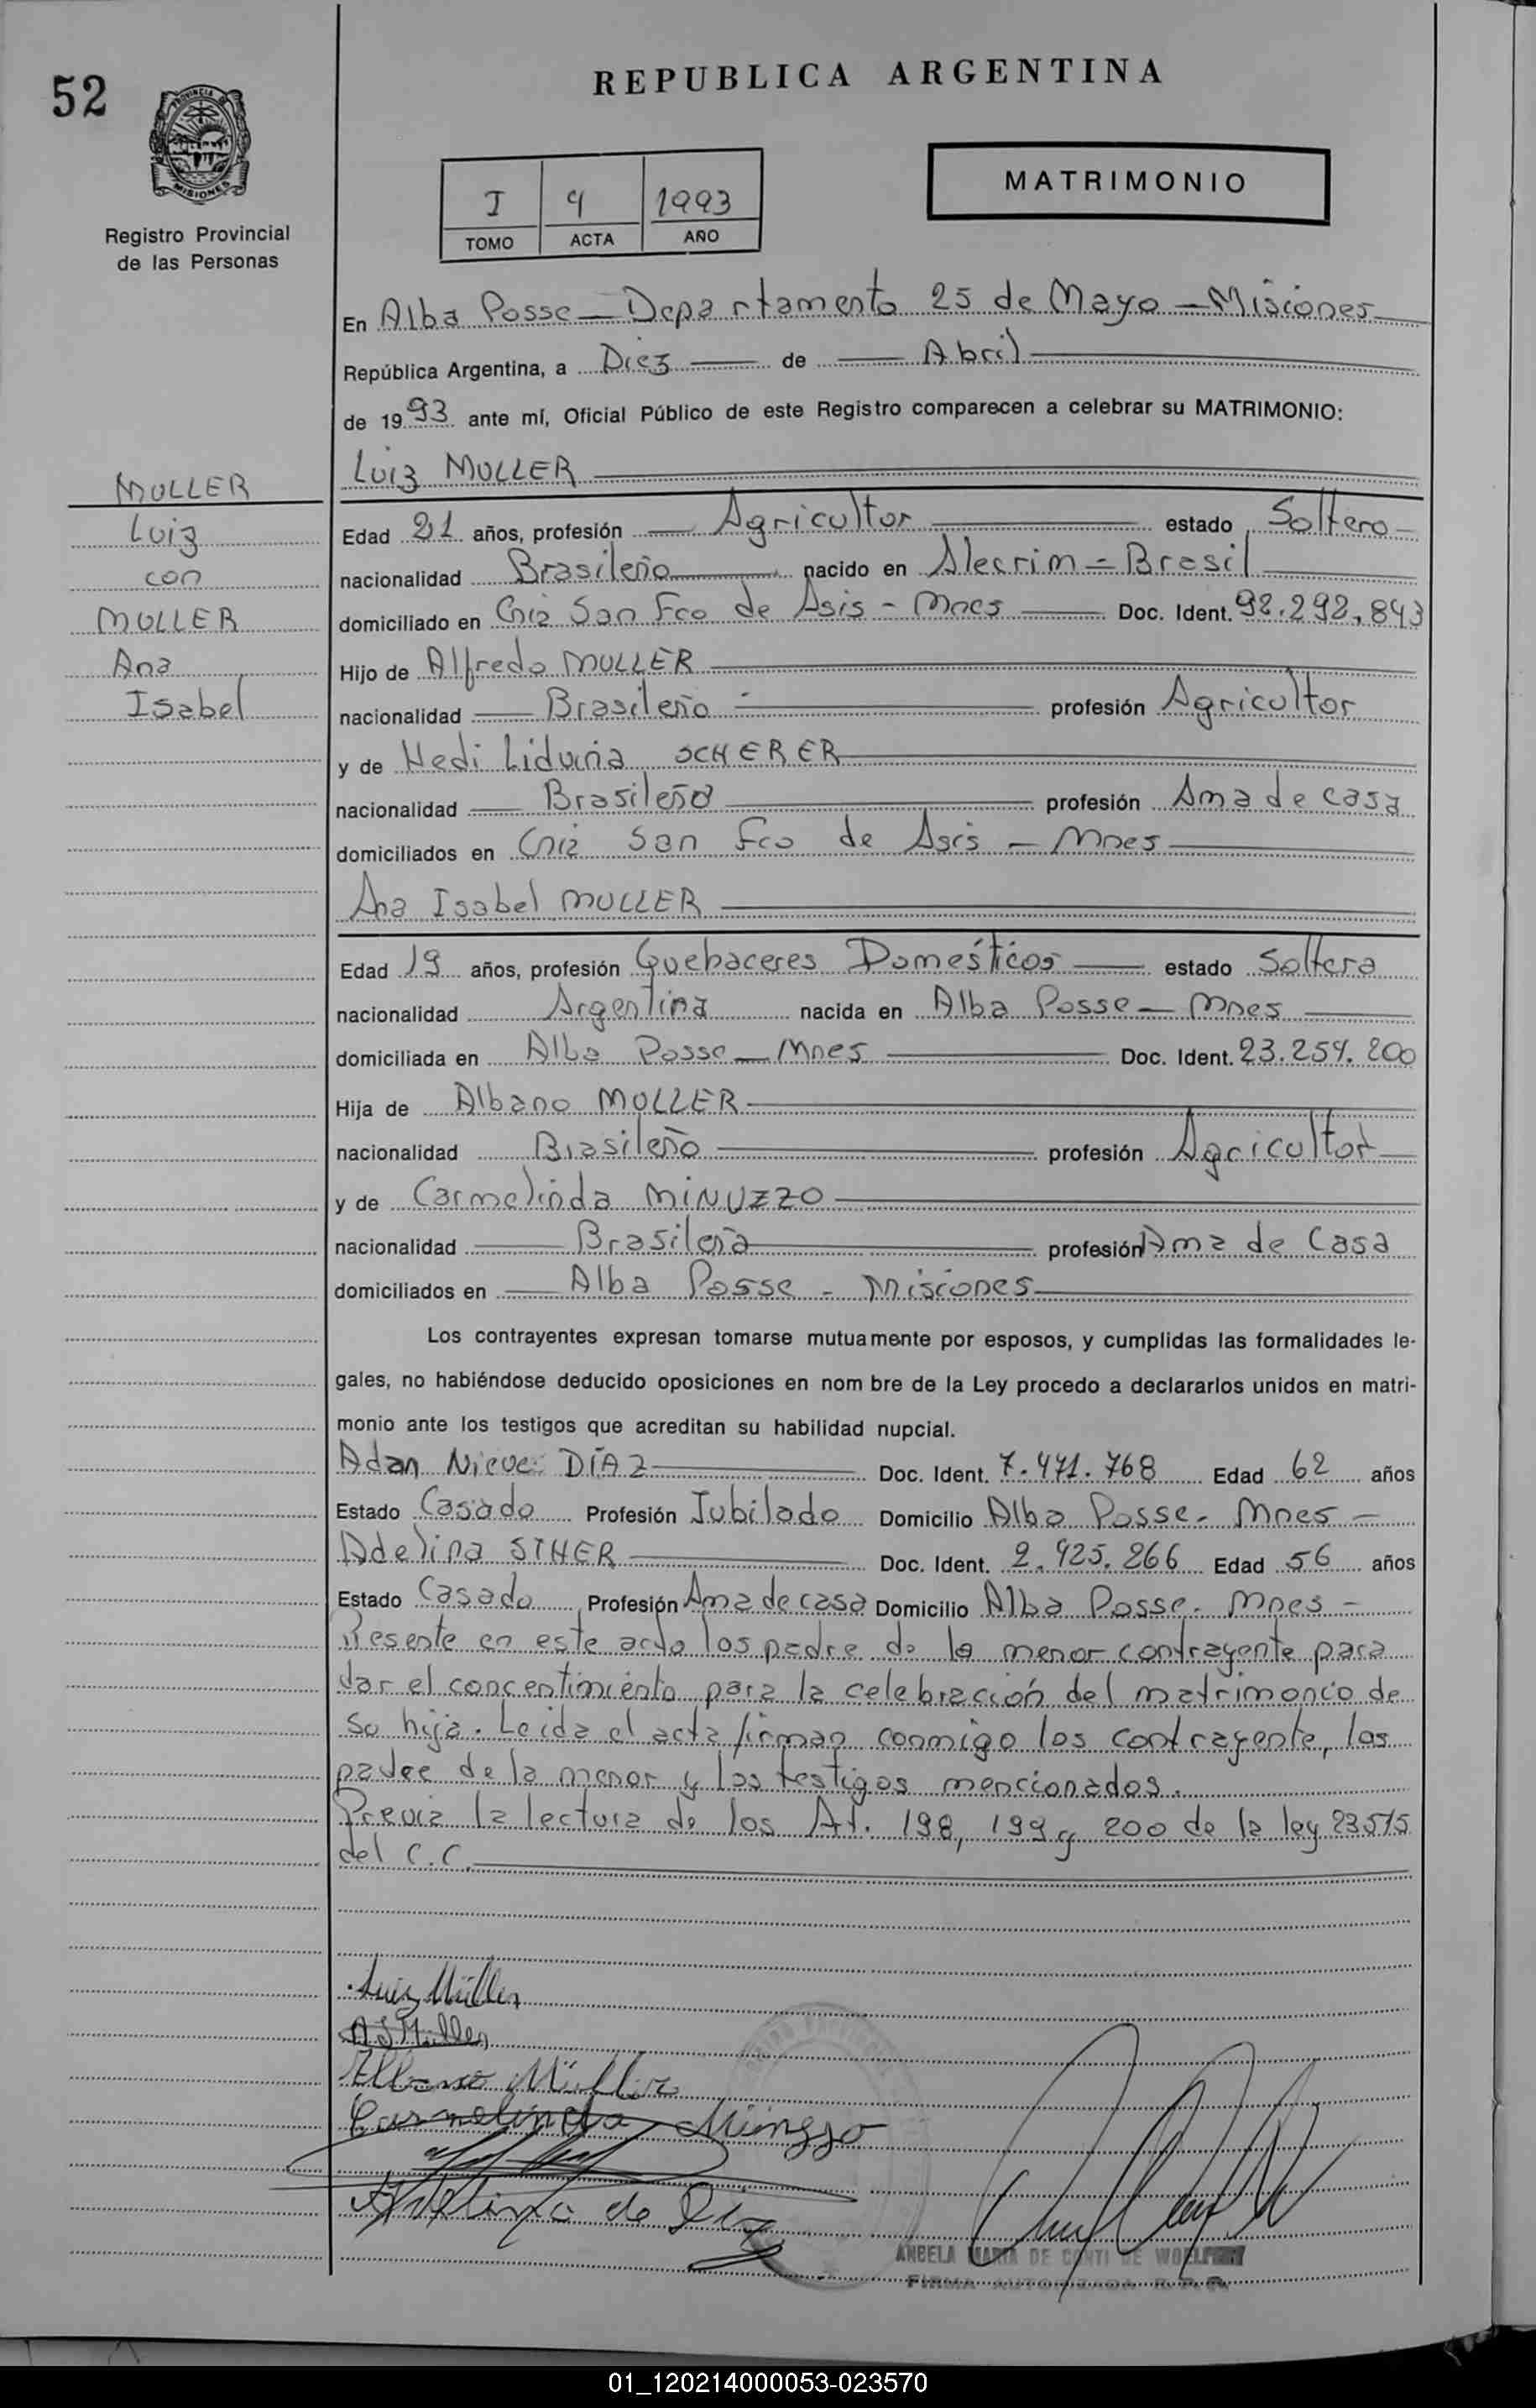 52
REPUBLICA ARGENTINA
PROVINCIA
MISIONES
Registro Provincial
de las Personas
I 9 1993
TOMO ACTA AÑO
MATRIMONIO
En Alba Posse — Departamento 25 de Mayo — Misiones
República Argentina, a Diez de Abril
de 1993 ante mí, Oficial Público de este Registro comparecen a celebrar su MATRIMONIO:
Luiz MULLER
MULLER
Luiz
con
MULLER
Ana
Isabel
Edad 21 años, profesión Agricultor estado Soltero
nacionalidad Brasileño nacido en Alecrim - Brasil
domiciliado en Cnia San Fco de Asis - Mnes Doc. Ident. 92.292.843
Hijo de Alfredo MULLER
nacionalidad Brasileño profesión Agricultor
y de Hedi SCHERER
nacionalidad Brasileña profesión Ama de casa
domiciliados en Cnia San Fco de Asis - Mnes
Ana Isabel MULLER
Edad 19 años, profesión Quehaceres Domésticos estado Soltera
nacionalidad Argentina nacida en Alba Posse - Mnes
domiciliada en Alba Posse - Mnes Doc. Ident. 23.254.200
Hija de Albano MULLER
nacionalidad Brasileño profesión Agricultor
y de Carmelinda MINUZZO
nacionalidad Brasileña profesión Ama de Casa
domiciliados en Alba Posse - Misiones
Los contrayentes expresan tomarse mutuamente por esposos, y cumplidas las formalidades le-
gales, no habiéndose deducido oposiciones en nom bre de la Ley procedo a declararlos unidos en matri-
monio ante los testigos que acreditan su habilidad nupcial.
Adan Nieve DÍAZ Doc. Ident. 7.471.768 Edad 62 años
Estado Casado Profesión Jubilado Domicilio Alba Posse - Mnes -
Adelina STHER Doc. Ident. 2.925.266 Edad 56 años
Estado Casado Profesión Ama de casa Domicilio Alba Posse - Mnes -
Presente en este acto los padre de la menor contrayente para
dar el concentimiento para la celebración del matrimonio de
su hija. Leida el acta firman conmigo los contrayente, los
padre de la menor y los testigos mencionados.
Previa la lectura de los Art. 198, 199 y 200 de la ley 23515
del C.C.
Luiz Müller
A I Müller
Albano Müller
Carmelinda Minuzzo
Adelina de Diaz
ANGELA MARIA DE CONTI DE
FIRMA AUTORIZADA R.P.P.
01_120214000053-023570